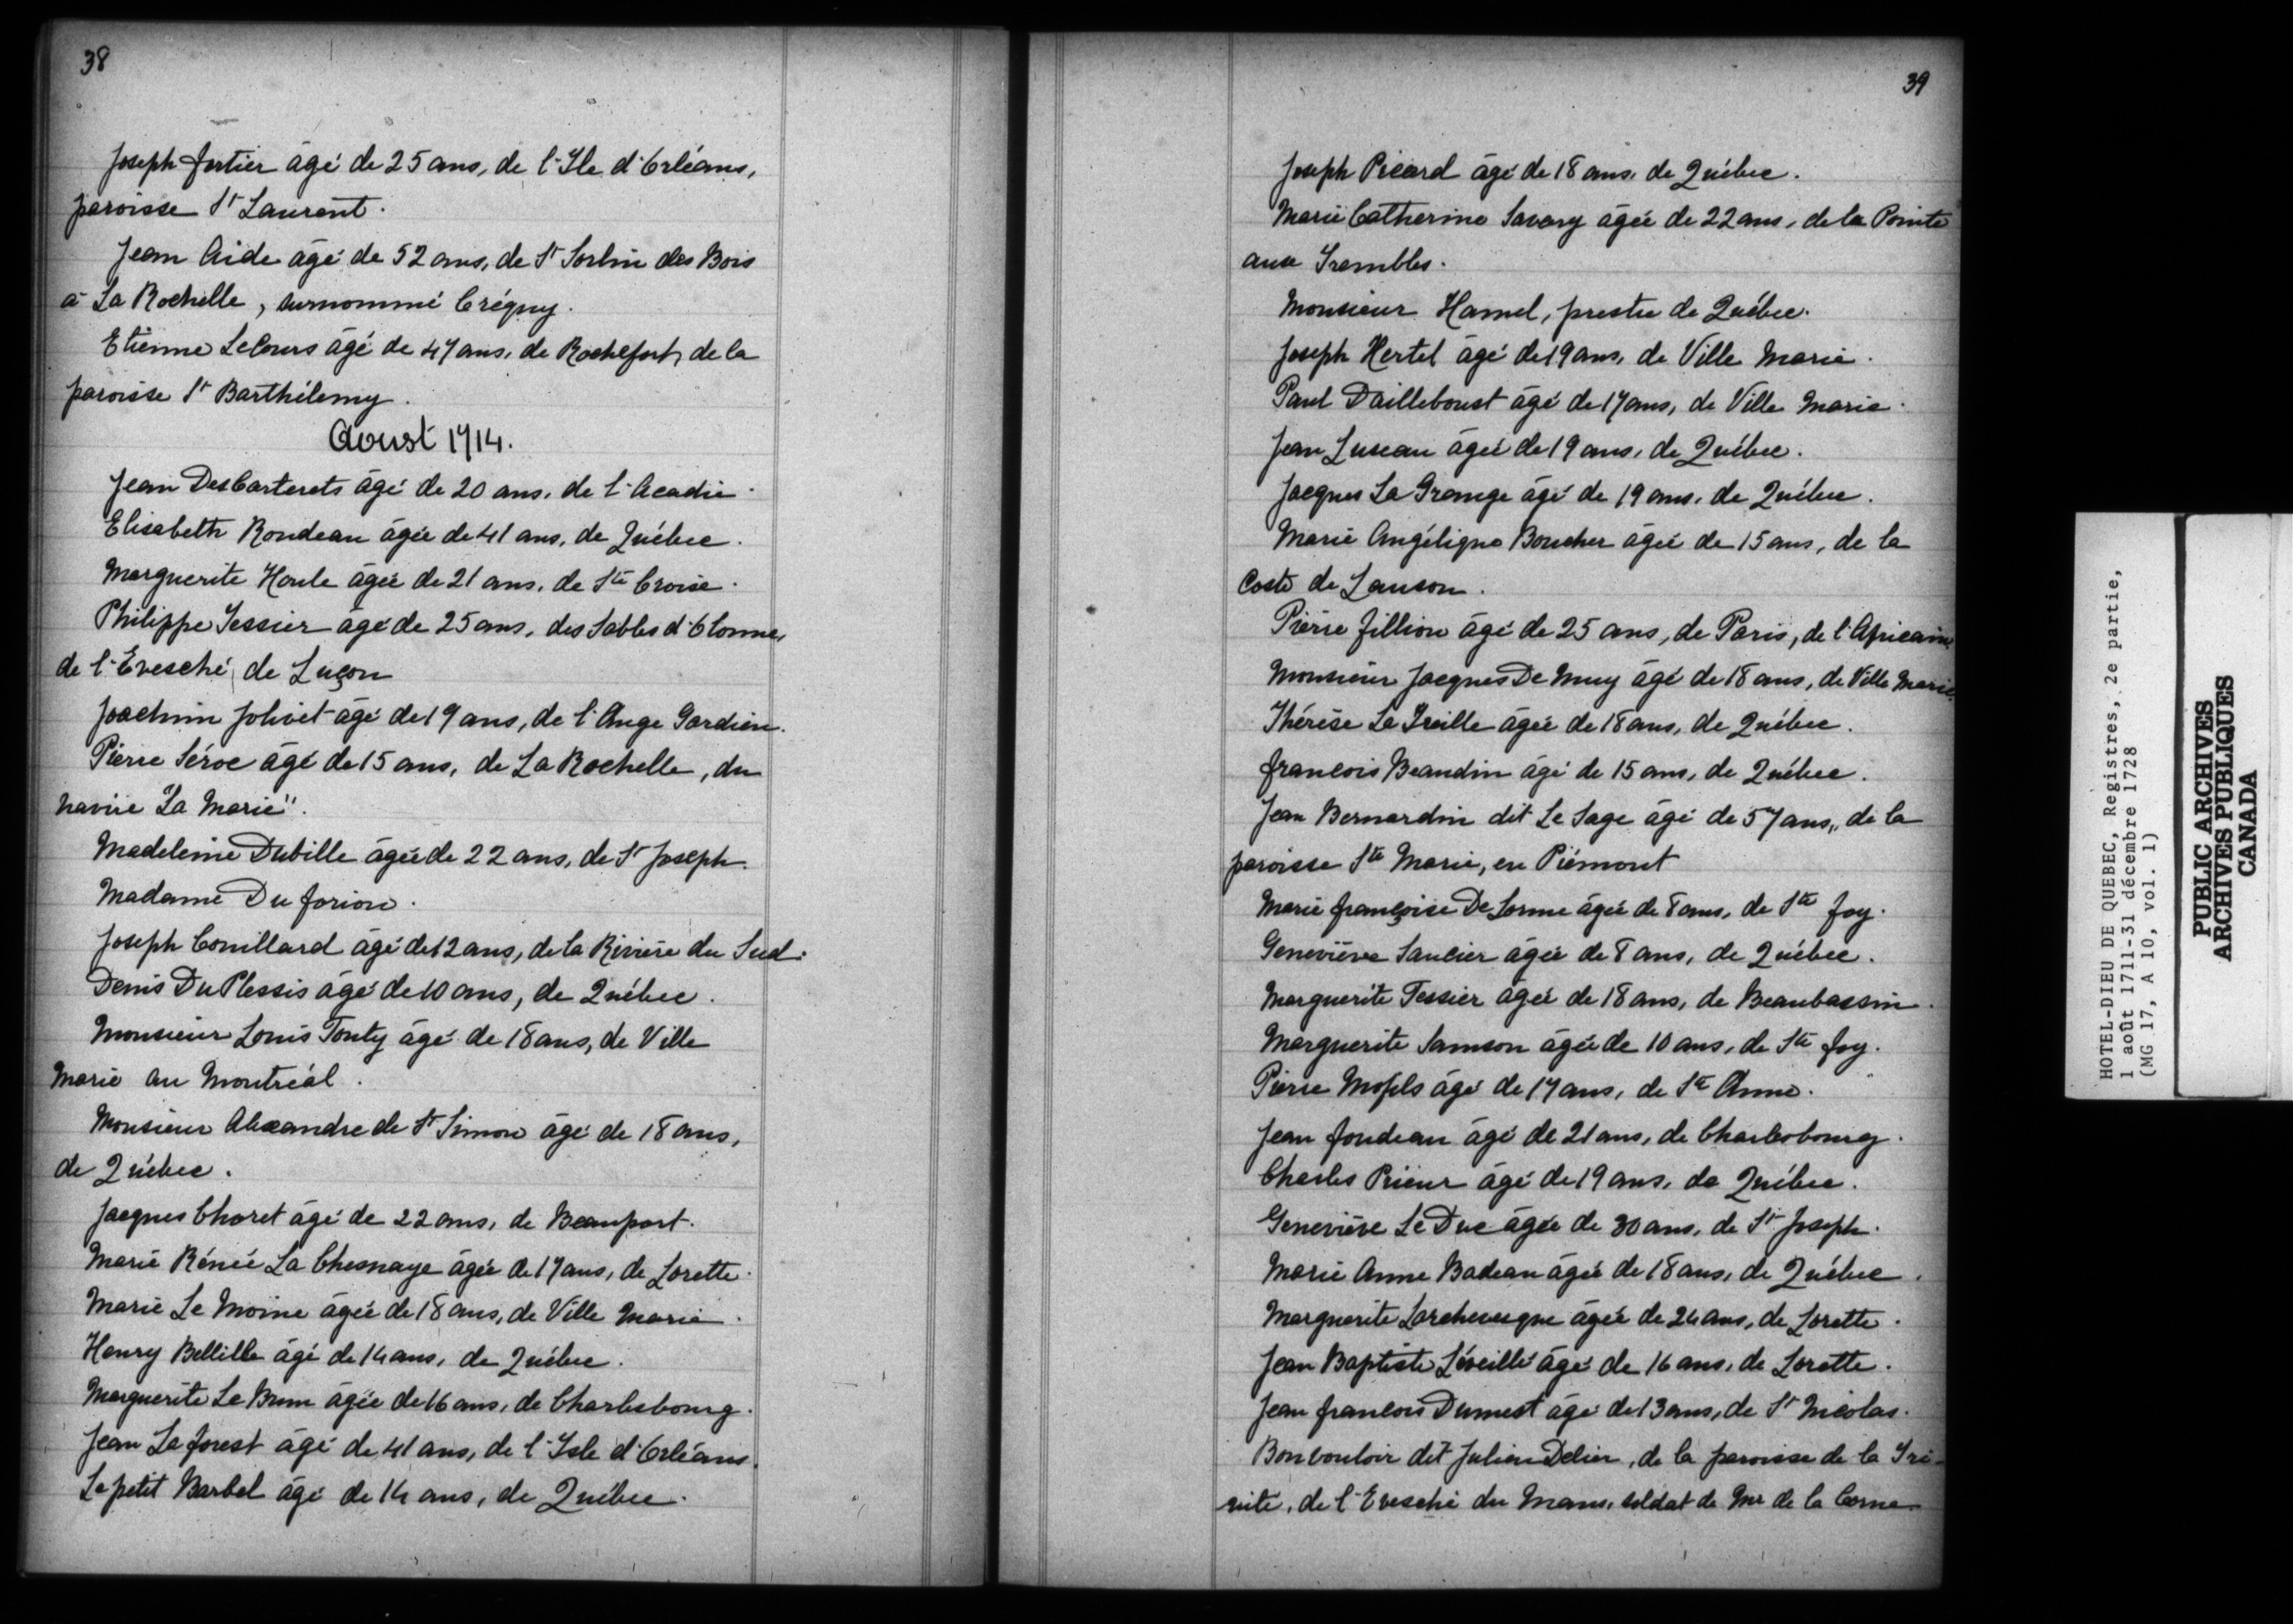 38
Joseph fortier âgé de 25 ans, de l'Ile d'Orléans,
paroisse St Laurent.
Jean Aide âgé de 52 ans, de St Sorlin des Bois
à La Rochelle, surnommé Crégny.
Etienne LeCours âgé de 47 ans, de Rochefort, de la
paroisse St Barthélemy.
Aoust 1714.
Jean DesCarterets âgé de 20 ans, de l'Acadie.
Elisabeth Rondeau âgée de 41 ans, de Québec.
Marguerite Houle âgée de 21 ans, de Ste Croix.
Philippe Tessier âgé de 25 ans, des Sables d'Olonne,
de l'Evesché de Luçon
Joachim Jolivet âgé de 19 ans, de l'Ange Gardien.
Pierre Séroc âgé de 15 ans, de La Rochelle, du
navire "La Marie".
Madeleine Dubille âgée de 22 ans, de St Joseph.
Madame Du forion.
Joseph Couillard âgé de 12 ans, de la Rivière du Sud.
Denis Du Plessis âgé de 10 ans, de Québec.
Monsieur Louis Tonty âgé de 18 ans, de Ville
Marie au Montréal.
Monsieur Alexandre de St Simon âgé de 18 ans,
de Québec.
Jacques Choret âgé de 22 ans, de Beauport.
Marie Rénée La Chesnaye âgée de 17 ans, de Lorette.
Marie Le Moine âgée de 18 ans, de Ville Marie.
Henry Bellille âgé de 14 ans, de Québec.
Marguerite Le Brun âgée de 16 ans, de Charlesbourg.
Jean La forest âgé de 41 ans, de l'Isle d'Orléans.
Le petit Barbel âgé de 14 ans, de Québec.
39
Joseph Picard âgé de 18 ans, de Québec.
Marie Catherine Savary âgée de 22 ans, de la Pointe
aux Trembles.
Monsieur Hamel, prestre de Québec.
Joseph Hertel âgé de 19 ans, de Ville Marie.
Paul Dailleboust âgé de 17 ans, de Ville Marie.
Jean Luseau âgé de 19 ans, de Québec.
Jacques La Grange âgé de 19 ans, de Québec.
Marie Angélique Boucher âgée de 15 ans, de la
Coste de Lauson.
Pierre fillion âgé de 25 ans, de Paris, de l'Africain.
Monsieur Jacques De Muy âgé de 18 ans, de Ville Marie.
Thérèse La Treille âgée de 18 ans, de Québec.
francois Beaudin âgé de 15 ans, de Québec.
Jean Bernardin dit Le Sage âgé de 57 ans, de la
paroisse Ste Marie, en Piémont
Marie françoise De Lorme âgée de 8 ans, de Ste foy.
Geneviève Saucier âgée de 8 ans, de Québec.
Marguerite Tessier âgée de 18 ans, de Beaubassin.
Marguerite Samson âgée de 10 ans, de Ste foy.
Pierre âgé de 17 ans, de Ste Anne.
Jean fondeau âgé de 21 ans, de Charlesbourg.
Charles Prieur âgé de 19 ans, de Québec.
Geneviève Le Duc âgée de 30 ans, de St Joseph.
Marie Anne Badeau âgée de 18 ans, de Québec.
Marguerite Larchevesque âgée de 24 ans, de Lorette.
Jean Baptiste Léveillé âgé de 16 ans, de Lorette.
Jean francois Dumest âgé de 13 ans, de St Nicolas.
Bonvouloir dit Julien Delier, de la paroisse de la Tri-
nité, de l'Evesché du Mans, soldat de Mr de la Corne
HOTEL-DIEU DE QUEBEC, Registres, 2e partie,
1 août 1711-31 décembre 1728
(MG 17, A 10, vol. 1)
PUBLIC ARCHIVES
ARCHIVES PUBLIQUES
CANADA